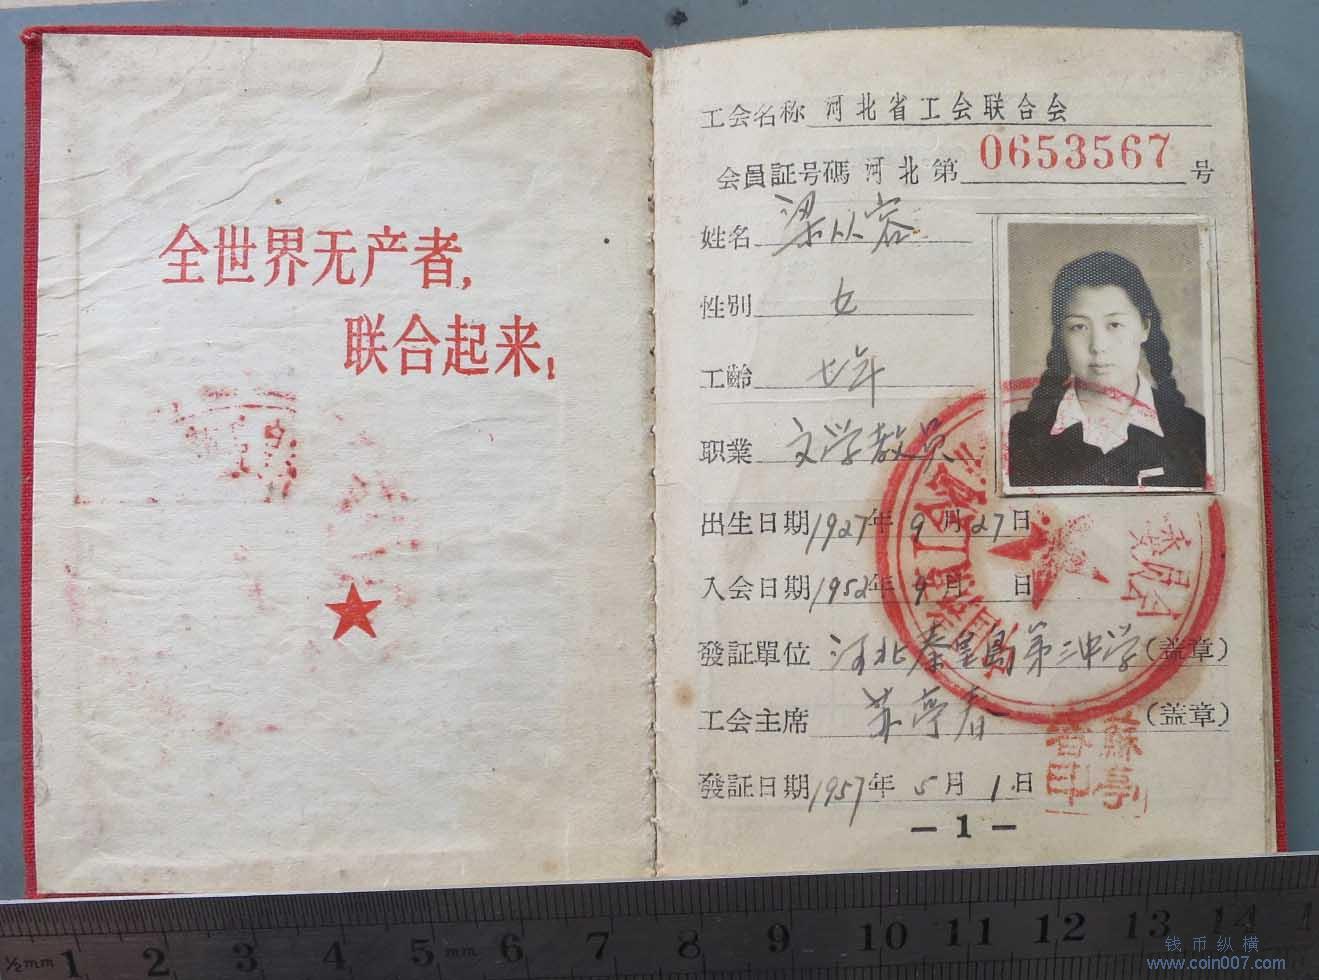 全世界无产者,
联合起来!
工会名称 河北省工会联合会
会員証号碼 河北第 0653567 号
姓名 梁从容
性別 女
工齡 七年
职業 文学教员
出生日期 1927年 9月 27日
入会日期 1952年 9月 日
發証單位 河北秦皇島第三中学(盖章)
工会主席 苏亭春 (盖章)
發証日期 1957年 5月 1日
蘇亭
春印
委員会
— 1 —
½mm 1 2 3 4 5 mm 6 7 8 9 10 11 12 13 14
钱币纵横
www.coin007.com